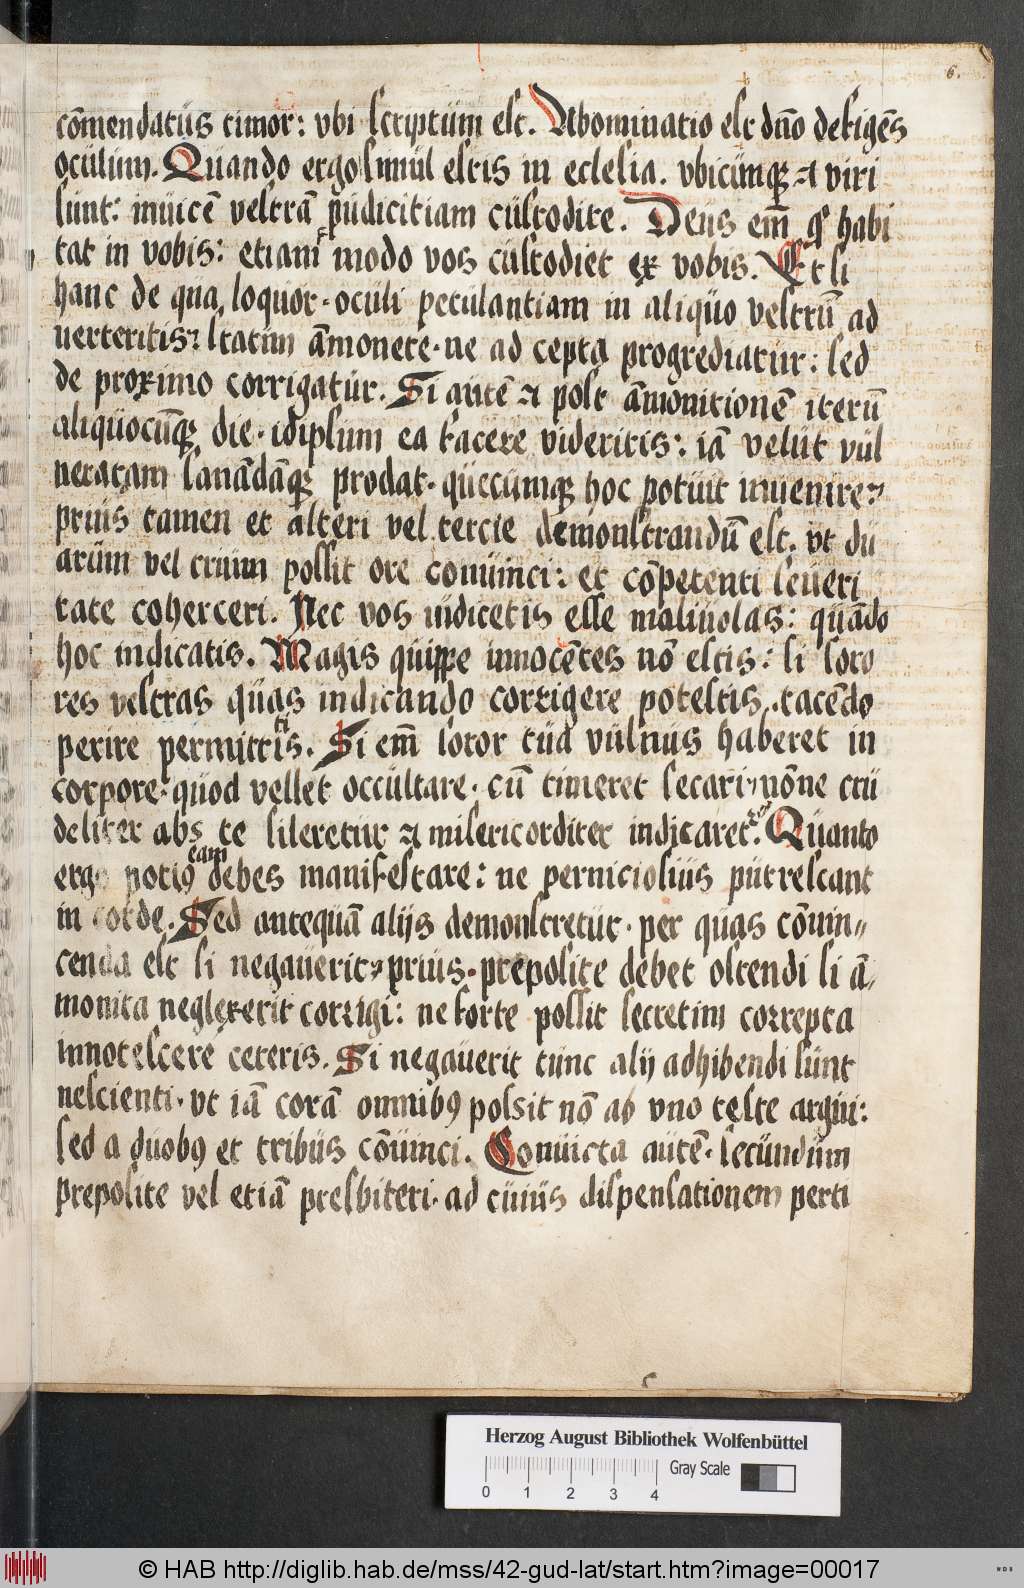 6.
cōmendatus timor: vbi scriptum est. Abominatio est dn̄o defigēs
oculum. Quando ergo simul estis in ecclesia. vbicumqꝫ ⁊ viri
sunt: inuicē vestrā pudicitiam custodite. Deus em̄ qͥ habi
tat in vobis: etiam modo vos custodiet ex vobis. Et si
hanc de qua loquor · oculi petulantiam in aliquo vestrū ad
uerteritis: statim āmonete · ne ad cepta progrediatur: sed
de proximo corrigatur. Si autē ⁊ post āmonitionē iterū
aliquocūqꝫ die · idipsum ea facere videritis: iā velut vul
neratam sanādāqꝫ prodat · quecumqꝫ hoc potuit inuenire:
prius tamen et alteri vel tercie demonstrandū est. vt du
arum vel trium possit ore conuinci: et cōpetenti seueri
tate coherceri. Nec vos iudicetis esse maliuolas: quādo
hoc indicatis. Magis quippe innocētes nō estis: si soro
res vestras quas indicando corrigere potestis, tacēdo
perire permittitis. Si em̄ soror tua vulnus haberet in
corpore · quod vellet occultare · cū timeret secari · nōne cru
deliter abs te sileretur ⁊ misericorditer indicaret: Quanto
ergo potiꝯ eam debes manifestare: ne perniciosius putrescant
in corde. Sed antequā alijs demonstretur · per quas cōuin-
cenda est si negauerit, prius · preposite debet ostendi si ā-
monita neglexerit corrigi: ne forte possit secretim correpta
innotescere ceteris. Si negauerit tunc alij adhibendi sunt
nescienti · vt iā corā omnibꝯ possit nō ab vno teste argui:
sed a duobꝯ et tribus cōuinci. Conuicta autē · secundum
preposite vel etiā presbiteri · ad cuius dispensationem perti
Herzog August Bibliothek Wolfenbüttel
Gray Scale
0 1 2 3 4
© HAB http://diglib.hab.de/mss/42-gud-lat/start.htm?image=00017